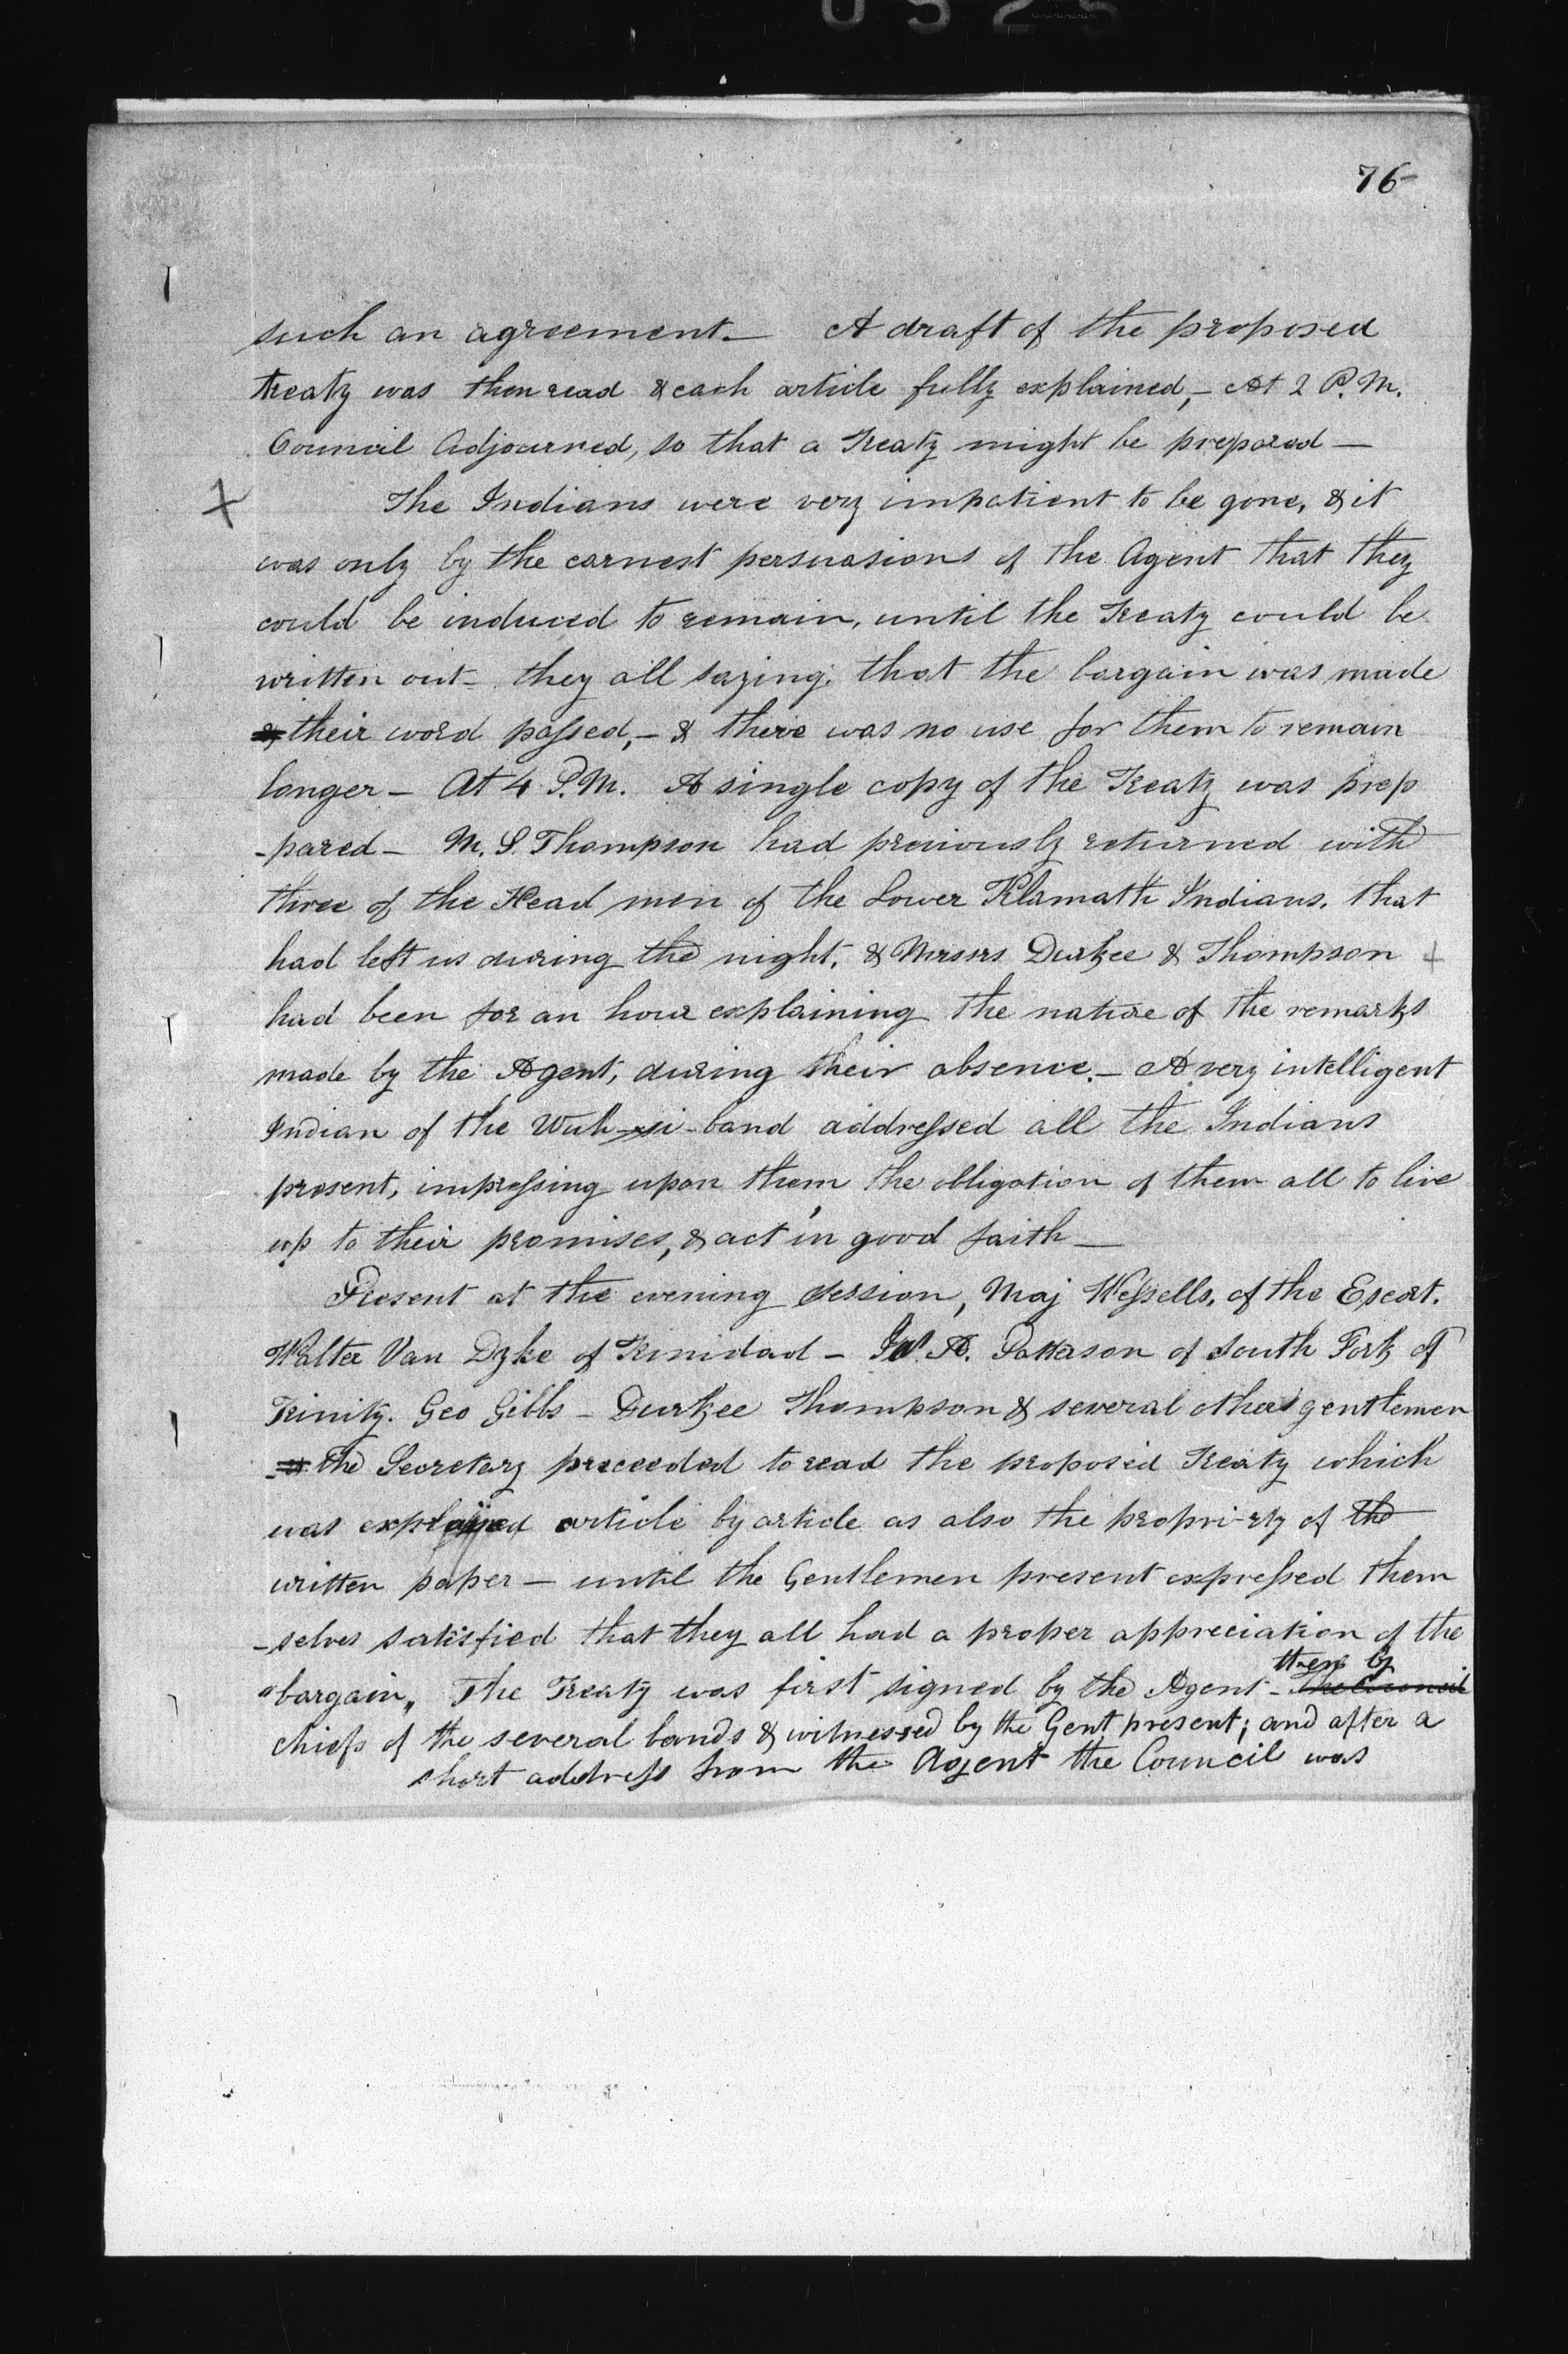 76
such an agreement. – A draft of the proposed
treaty was then read & each article fully explained, – At 2 P.M.
Council Adjourned, so that a Treaty might be prepared –
The Indians were very impatient to be gone, & it
was only by the earnest persuasions of the Agent that they
could be induced to remain, until the Treaty could be
written out – they all saying, that the bargain was made
& their word passed, – & there was no use for them to remain
longer – At 4 P.M. A single copy of the Treaty was prep
-pared – M. S. Thompson had previously returned with
three of the Head men of the Lower Klamath Indians, that
had left us during the night, & Messrs Durkee & Thompson
had been for an hour explaining the nature of the remarks
made by the Agent, during their absence. – A very intelligent
Indian of the Wuh-si-band addressed all the Indians
present, impressing upon them the obligation of them all to live
up to their promises, & act in good faith –
Present at the evening session, Maj Wessells, of the Escort.
Walter Van Dyke of Trinidad – A. Patterson of South Fork of
Trinity. Geo Gibbs – Durkee Thompson & several others gentlemen
– & the Secretary proceeded to read the proposed Treaty which
was explained article by article as also the propri-ety of the
written paper – until the Gentlemen present expressed them
-selves satisfied that they all had a proper appreciation of the
then by
"bargain" The Treaty was first signed by the Agent – the Council
chiefs of the several bands & witnessed by the Gent present; and after a
short address from the Agent the Council was